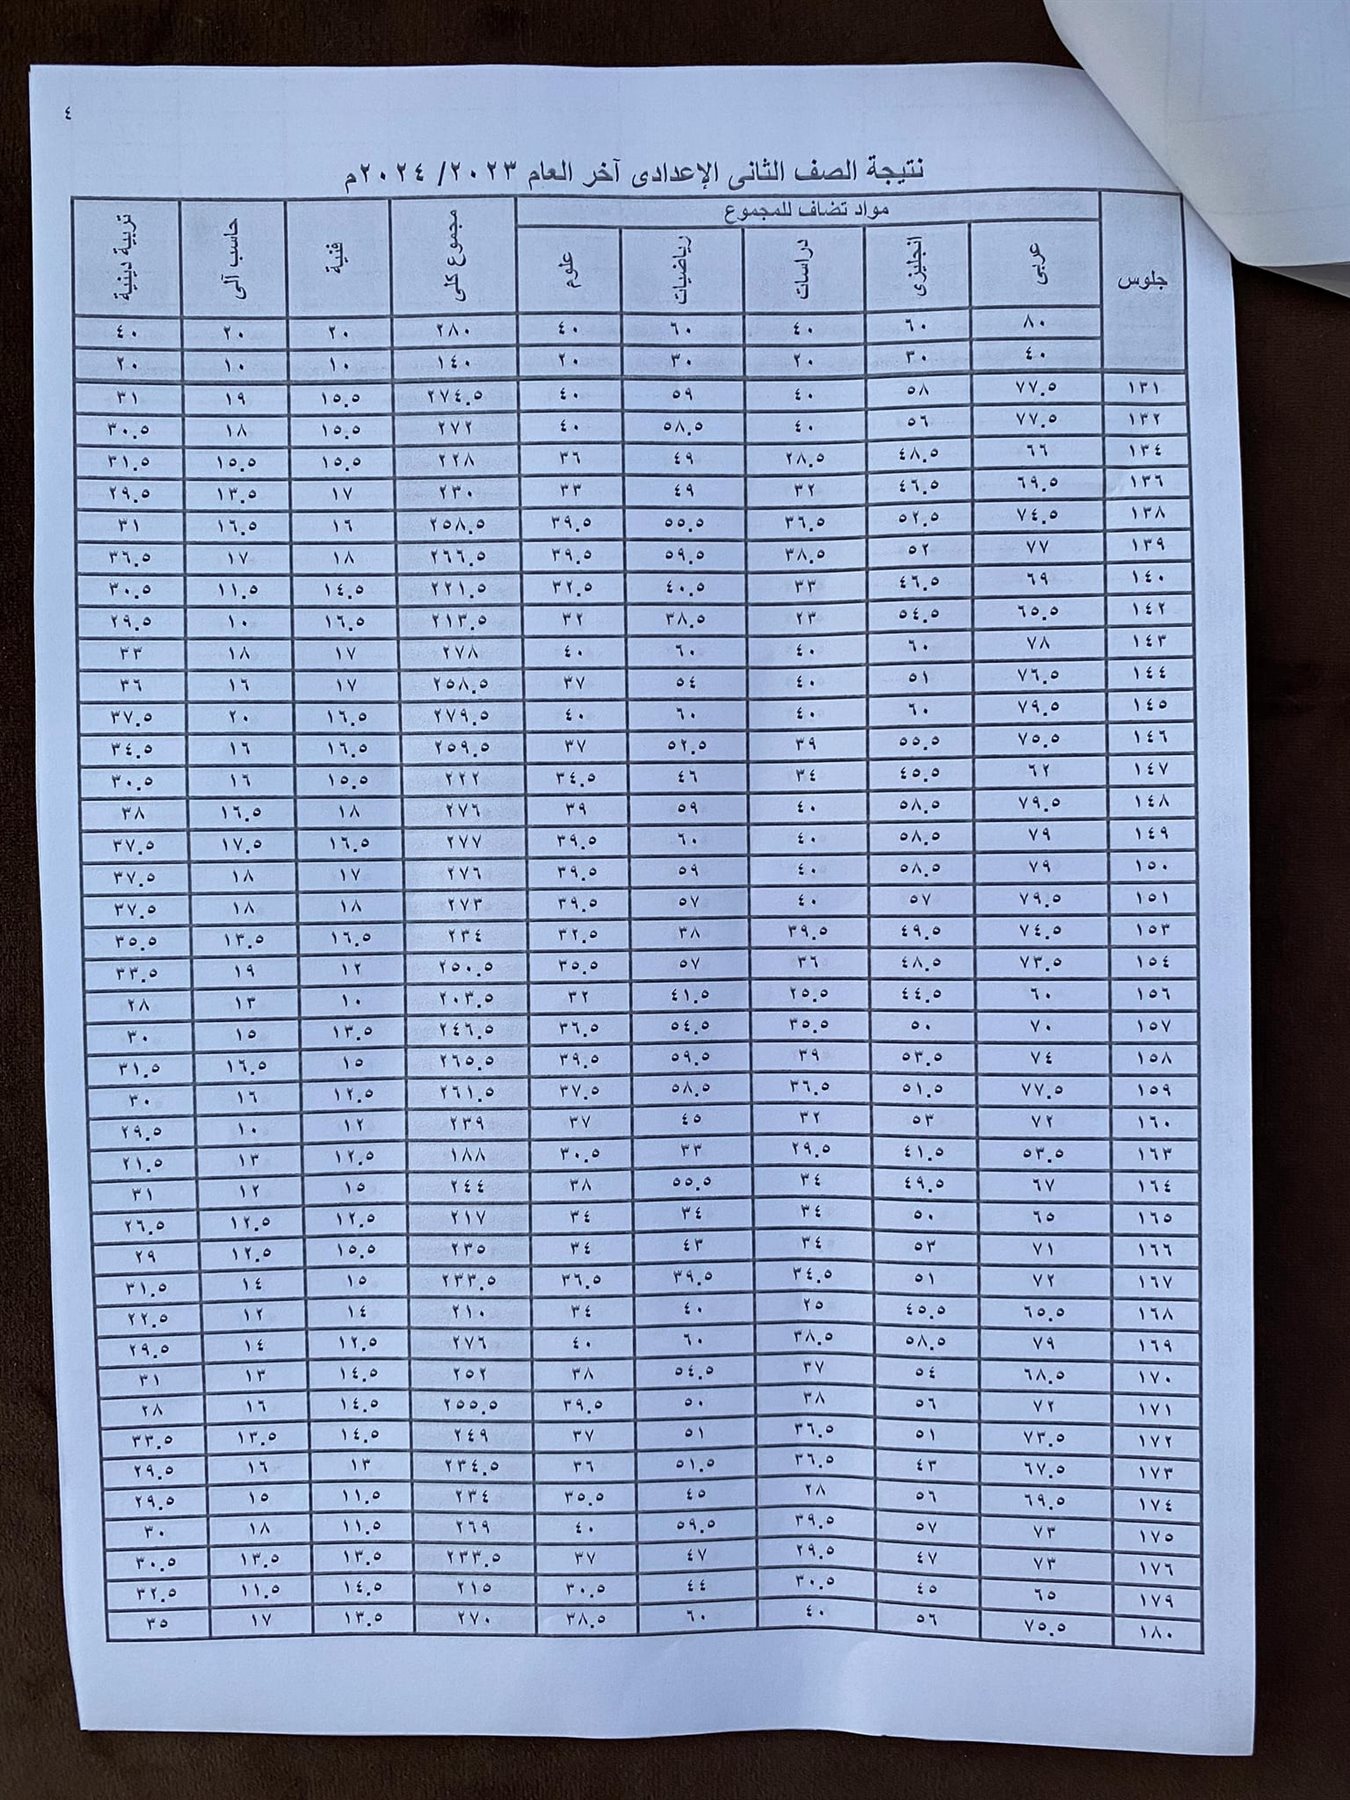 ٤
نتيجة الصف الثانى الإعدادى آخر العام ٢٠٢٣/ ٢٠٢٤م
جلوس مواد تضاف للمجموع مجموع كلى فنية حاسب آلى تربية دينية
عربى انجليزى دراسات رياضيات علوم
٨٠ ٦٠ ٤٠ ٦٠ ٤٠ ٢٨٠ ٢٠ ٢٠ ٤٠
٤٠ ٣٠ ٢٠ ٣٠ ٢٠ ١٤٠ ١٠ ١٠ ٢٠
١٣١ ٧٧.٥ ٥٨ ٤٠ ٥٩ ٤٠ ٢٧٤.٥ ١٥.٥ ١٩ ٣١
١٣٢ ٧٧.٥ ٥٦ ٤٠ ٥٨.٥ ٤٠ ٢٧٢ ١٥.٥ ١٨ ٣٠.٥
١٣٤ ٦٦ ٤٨.٥ ٢٨.٥ ٤٩ ٣٦ ٢٢٨ ١٥.٥ ١٥.٥ ٣١.٥
١٣٦ ٦٩.٥ ٤٦.٥ ٣٢ ٤٩ ٣٣ ٢٣٠ ١٧ ١٣.٥ ٢٩.٥
١٣٨ ٧٤.٥ ٥٢.٥ ٣٦.٥ ٥٥.٥ ٣٩.٥ ٢٥٨.٥ ١٦ ١٦.٥ ٣١
١٣٩ ٧٧ ٥٢ ٣٨.٥ ٥٩.٥ ٣٩.٥ ٢٦٦.٥ ١٨ ١٧ ٣٦.٥
١٤٠ ٦٩ ٤٦.٥ ٣٣ ٤٠.٥ ٣٢.٥ ٢٢١.٥ ١٤.٥ ١١.٥ ٣٠.٥
١٤٢ ٦٥.٥ ٥٤.٥ ٢٣ ٣٨.٥ ٣٢ ٢١٣.٥ ١٦.٥ ١٠ ٢٩.٥
١٤٣ ٧٨ ٦٠ ٤٠ ٦٠ ٤٠ ٢٧٨ ١٧ ١٨ ٣٣
١٤٤ ٧٦.٥ ٥١ ٤٠ ٥٤ ٣٧ ٢٥٨.٥ ١٧ ١٦ ٣٦
١٤٥ ٧٩.٥ ٦٠ ٤٠ ٦٠ ٤٠ ٢٧٩.٥ ١٦.٥ ٢٠ ٣٧.٥
١٤٦ ٧٥.٥ ٥٥.٥ ٣٩ ٥٢.٥ ٣٧ ٢٥٩.٥ ١٦.٥ ١٦ ٣٤.٥
١٤٧ ٦٢ ٤٥.٥ ٣٤ ٤٦ ٣٤.٥ ٢٢٢ ١٥.٥ ١٦ ٣٠.٥
١٤٨ ٧٩.٥ ٥٨.٥ ٤٠ ٥٩ ٣٩ ٢٧٦ ١٨ ١٦.٥ ٣٨
١٤٩ ٧٩ ٥٨.٥ ٤٠ ٦٠ ٣٩.٥ ٢٧٧ ١٦.٥ ١٧.٥ ٣٧.٥
١٥٠ ٧٩ ٥٨.٥ ٤٠ ٥٩ ٣٩.٥ ٢٧٦ ١٧ ١٨ ٣٧.٥
١٥١ ٧٩.٥ ٥٧ ٤٠ ٥٧ ٣٩.٥ ٢٧٣ ١٨ ١٨ ٣٧.٥
١٥٣ ٧٤.٥ ٤٩.٥ ٣٩.٥ ٣٨ ٣٢.٥ ٢٣٤ ١٦.٥ ١٣.٥ ٣٥.٥
١٥٤ ٧٣.٥ ٤٨.٥ ٣٦ ٥٧ ٣٥.٥ ٢٥٠.٥ ١٢ ١٩ ٣٣.٥
١٥٦ ٦٠ ٤٤.٥ ٢٥.٥ ٤١.٥ ٣٢ ٢٠٣.٥ ١٠ ١٣ ٢٨
١٥٧ ٧٠ ٥٠ ٣٥.٥ ٥٤.٥ ٣٦.٥ ٢٤٦.٥ ١٣.٥ ١٥ ٣٠
١٥٨ ٧٤ ٥٣.٥ ٣٩ ٥٩.٥ ٣٩.٥ ٢٦٥.٥ ١٥ ١٦.٥ ٣١.٥
١٥٩ ٧٧.٥ ٥١.٥ ٣٦.٥ ٥٨.٥ ٣٧.٥ ٢٦١.٥ ١٢.٥ ١٦ ٣٠
١٦٠ ٧٢ ٥٣ ٣٢ ٤٥ ٣٧ ٢٣٩ ١٢ ١٠ ٢٩.٥
١٦٣ ٥٣.٥ ٤١.٥ ٢٩.٥ ٣٣ ٣٠.٥ ١٨٨ ١٢.٥ ١٣ ٢١.٥
١٦٤ ٦٧ ٤٩.٥ ٣٤ ٥٥.٥ ٣٨ ٢٤٤ ١٥ ١٢ ٣١
١٦٥ ٦٥ ٥٠ ٣٤ ٣٤ ٣٤ ٢١٧ ١٢.٥ ١٢.٥ ٢٦.٥
١٦٦ ٧١ ٥٣ ٣٤ ٤٣ ٣٤ ٢٣٥ ١٥.٥ ١٢.٥ ٢٩
١٦٧ ٧٢ ٥١ ٣٤.٥ ٣٩.٥ ٣٦.٥ ٢٣٣.٥ ١٥ ١٤ ٣١.٥
١٦٨ ٦٥.٥ ٤٥.٥ ٢٥ ٤٠ ٣٤ ٢١٠ ١٤ ١٢ ٢٢.٥
١٦٩ ٧٩ ٥٨.٥ ٣٨.٥ ٦٠ ٤٠ ٢٧٦ ١٢.٥ ١٤ ٢٩.٥
١٧٠ ٦٨.٥ ٥٤ ٣٧ ٥٤.٥ ٣٨ ٢٥٢ ١٤.٥ ١٣ ٣١
١٧١ ٧٢ ٥٦ ٣٨ ٥٠ ٣٩.٥ ٢٥٥.٥ ١٤.٥ ١٦ ٢٨
١٧٢ ٧٣.٥ ٥١ ٣٦.٥ ٥١ ٣٧ ٢٤٩ ١٤.٥ ١٣.٥ ٣٣.٥
١٧٣ ٦٧.٥ ٤٣ ٣٦.٥ ٥١.٥ ٣٦ ٢٣٤.٥ ١٣ ١٦ ٢٩.٥
١٧٤ ٦٩.٥ ٥٦ ٢٨ ٤٥ ٣٥.٥ ٢٣٤ ١١.٥ ١٥ ٢٩.٥
١٧٥ ٧٣ ٥٧ ٣٩.٥ ٥٩.٥ ٤٠ ٢٦٩ ١١.٥ ١٨ ٣٠
١٧٦ ٧٣ ٤٧ ٢٩.٥ ٤٧ ٣٧ ٢٣٣.٥ ١٣.٥ ١٣.٥ ٣٠.٥
١٧٩ ٦٥ ٤٥ ٣٠.٥ ٤٤ ٣٠.٥ ٢١٥ ١٤.٥ ١١.٥ ٣٢.٥
١٨٠ ٧٥.٥ ٥٦ ٤٠ ٦٠ ٣٨.٥ ٢٧٠ ١٣.٥ ١٧ ٣٥